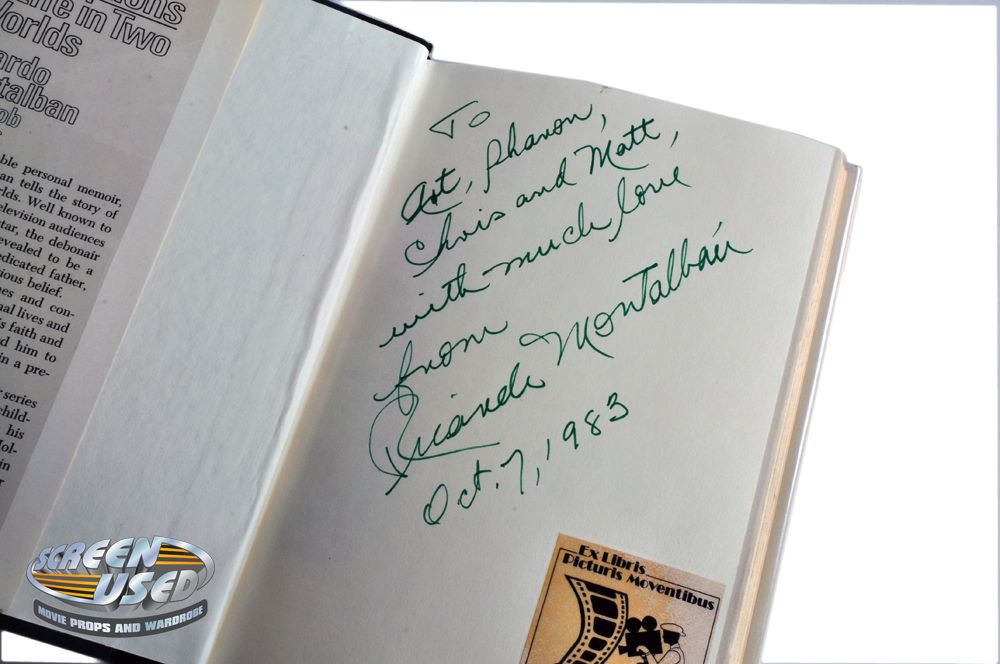 ions
ife in Two
orlds
ardo
talban
ob
ble personal memoir,
an tells the story of
rlds. Well known to
elevision audiences
star, the debonair
evealed to be a
edicated father,
ious belief.
es and con-
nal lives and
s faith and
d him to
in a pre-
r series
child-
his
Hol-
in
r
To
Art, Sharon,
Chris and Matt,
with much love
from
Ricardo Montalbán
Oct. 7, 1983
Ex Libris
Picturis Moventibus
SCREEN
USED
MOVIE PROPS AND WARDROBE